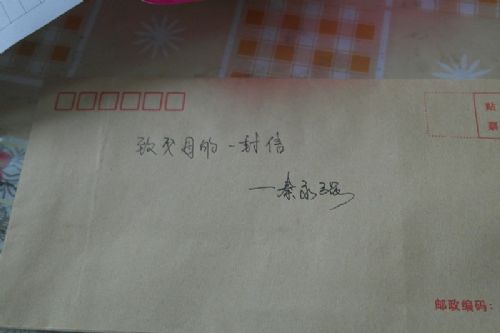 贴
票
致父母的一封信
—秦永强
邮政编码：